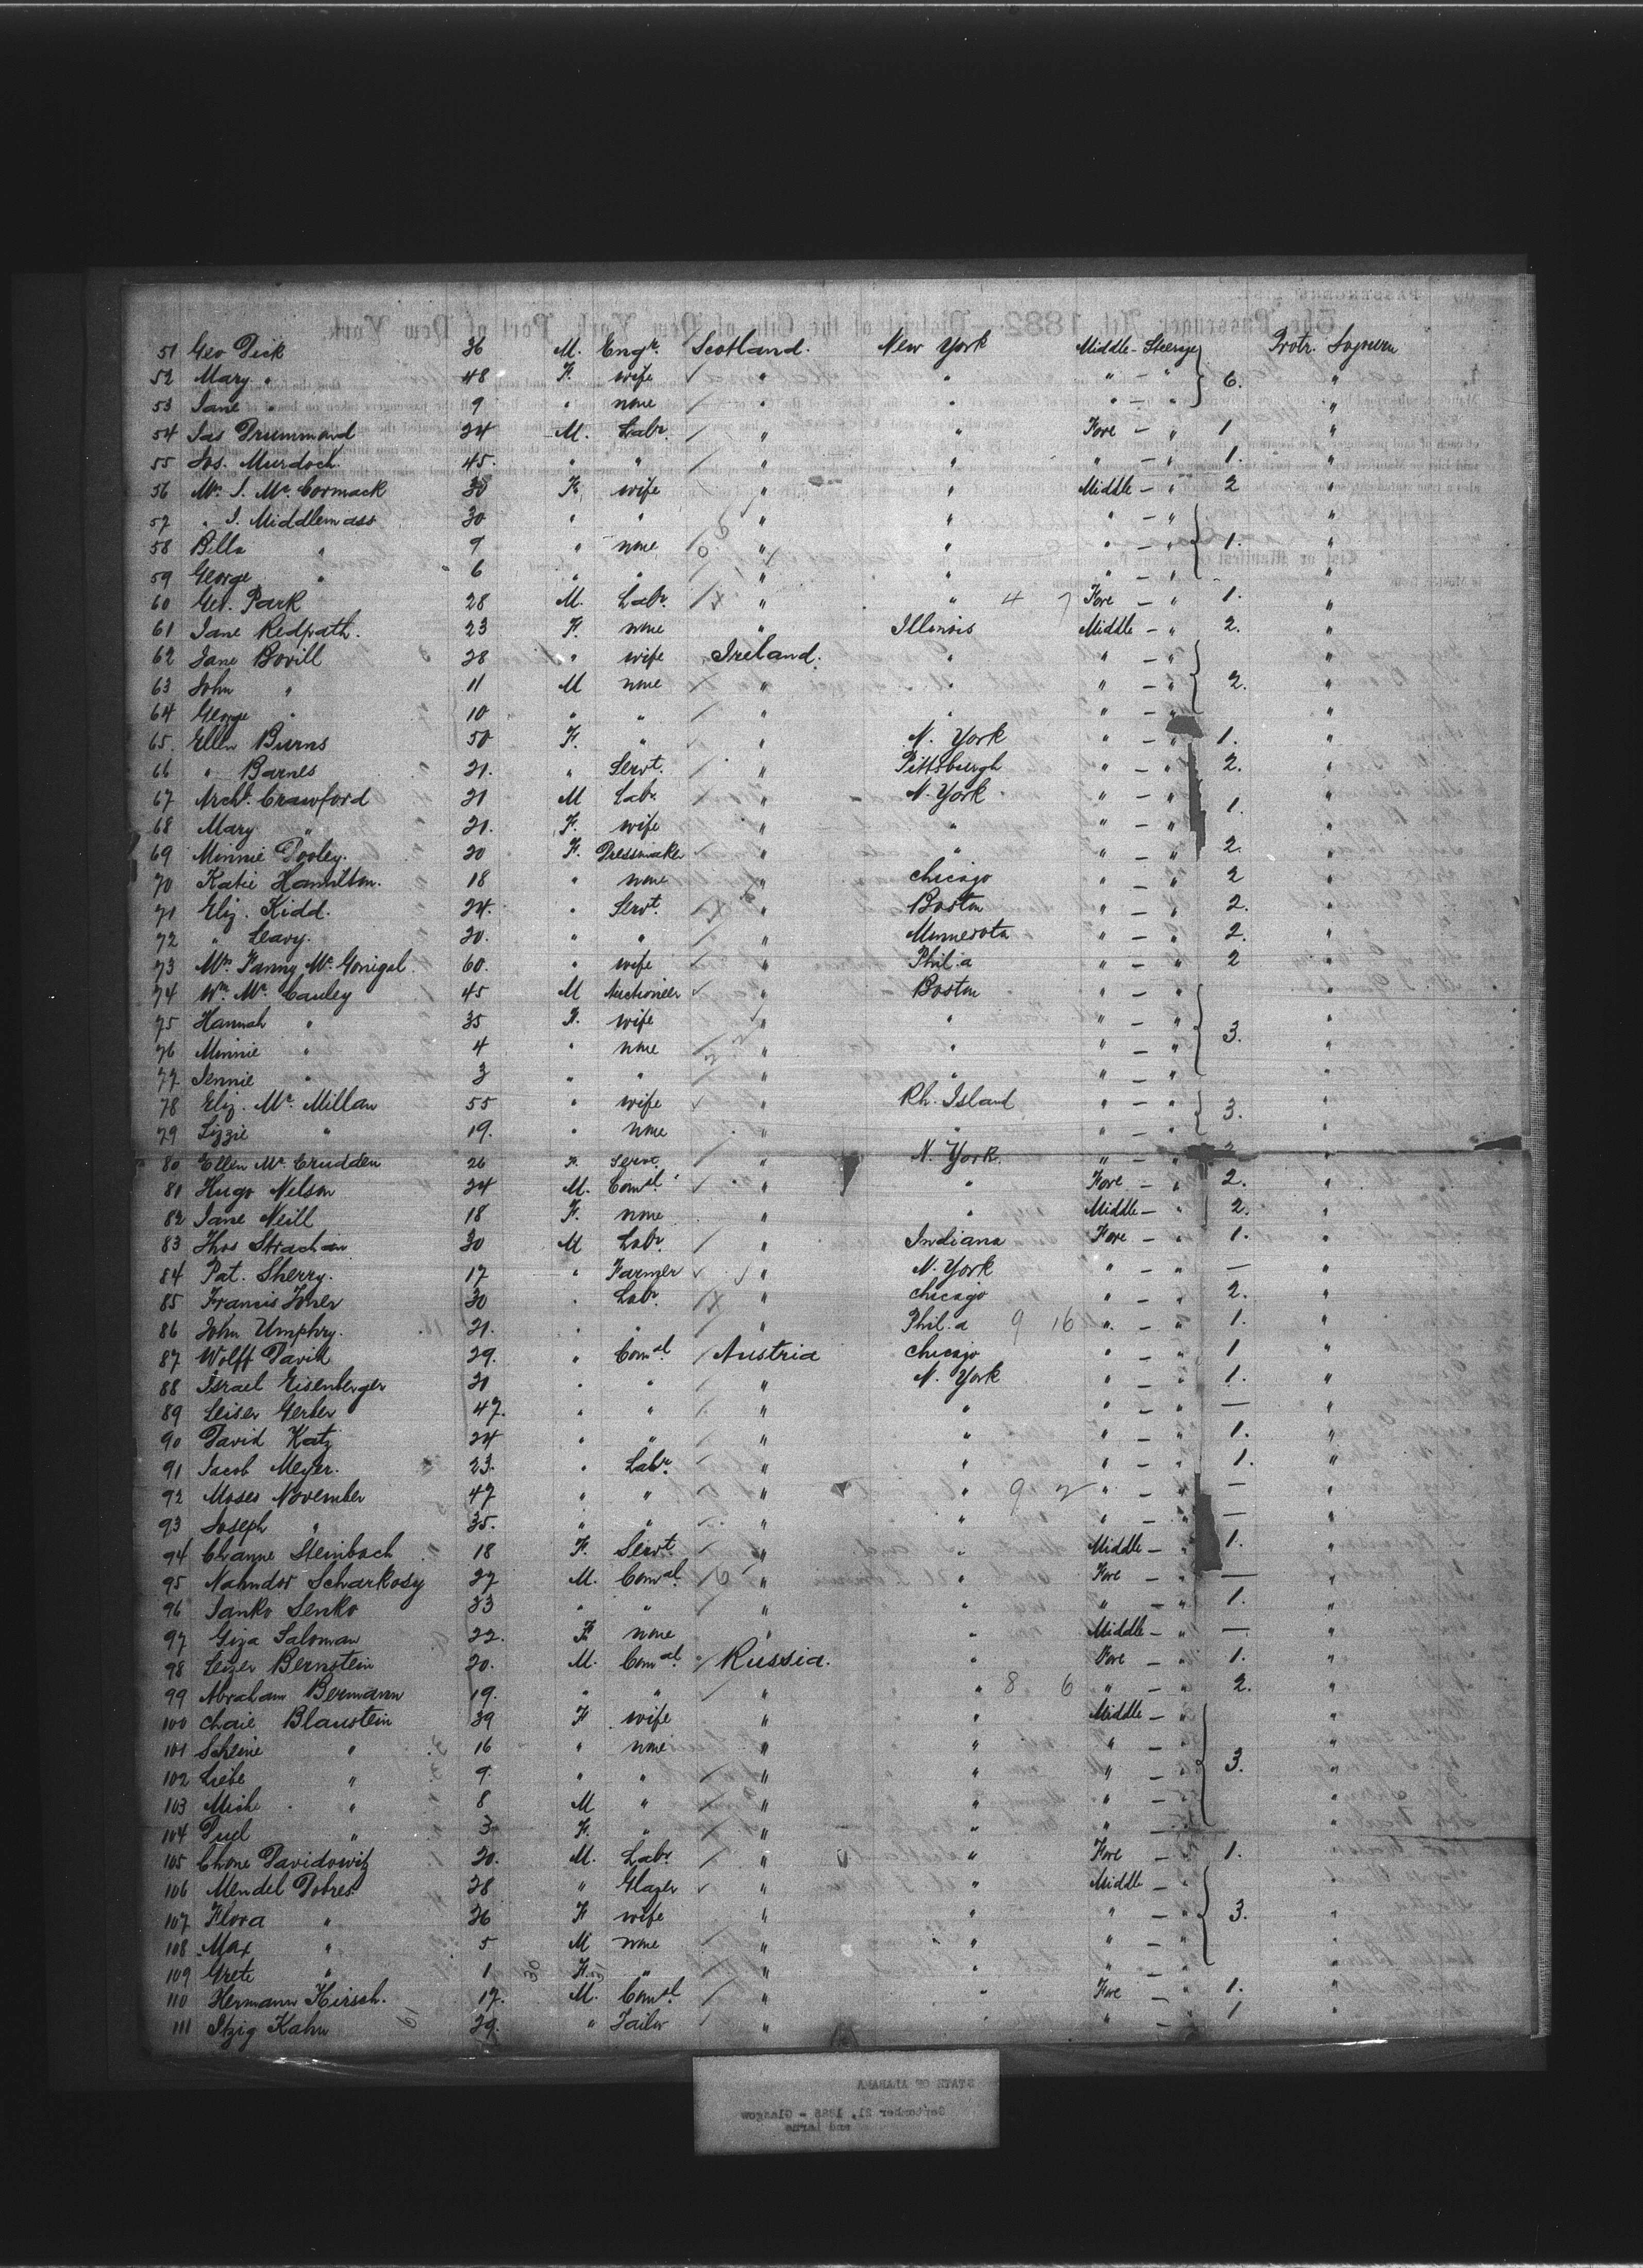 51 Geo Dick 36 M. Engr. Scotland. New York Middle - Steerage Protr. Sojourn
52 Mary " 48 F. wife " " " - " 6. "
53 Jane " 9 " none " " " - " "
54 Jas Drummond 24 M. Labr. " " Fore - " 1 "
55 Jos. Murdoch 45. " " " " " - " 1. "
56 Mrs. J. Mc. Cormack 30 F. wife " " Middle - " 2 "
57 " J. Middlemass 30 " " " " " - " "
58 Bella " 9 " none " " " - " 1. "
59 George " 6 " " " " " - " "
60 Geo. Park 28 M. Labr. " " 4 7 Fore - " 1. "
61 Jane Redpath. 23 F. none " Illinois Middle - " 2. "
62 Jane Bovill 28 " wife Ireland. " " - " "
63 John " 11 M none " " " - " 2. "
64 George " 10 " " " " " - " "
65. Ellen Burns 50 F. " " N. York " - " 1. "
66 " Barnes 21. " Servt. " Pittsburgh " - " 2. "
67 Archd. Crawford 21 M Labr. " N. York " - " 1. "
68 Mary " 21. F. wife " " " - " "
69 Minnie Dooley. 20 F. Dressmaker " " " - " 2. "
70 Katie Hamilton. 18 " none " Chicago " - " 2 "
71 Eliz. Kidd. 24. " Servt. " Boston " - " 2. "
72 " Leavy. 20. " " " Minnesota " - " 2. "
73 Mrs. Fanny Mc. Gonigal. 60. " wife " Phil.a " - " 2 "
74 Wm. Mc. Cauley 45 M Auctioneer " Boston " - " "
75 Hannah " 35 F. wife " " " - " "
76 Minnie " 4 " none " " " - " 3. "
77 Jennie " 3 " " " " " - " "
78 Eliz. Mc. Millan 55 " wife " Rh. Island " - " 3. "
79 Lizzie " 19. " none " " " - " "
80 Ellen Mc. Crudden 26 F. Servt. " N. York. " - " 2 "
81 Hugo Nelson 24 M. Comal. " " Fore - " 2. "
82 Jane Neill 18 F. none " " Middle - " 2. "
83 Thos Strachan 30 M Labr. " Indiana Fore - " 1. "
84 Pat. Sherry. 17 " Farmer " N. York " - " — "
85 Francis 30 " Labr. " Chicago " - " 2. "
86 John Umphry. 21. " " " Phil.a 9 16 " - " 1. "
87 Wolff David 29. " Comal. Austria Chicago " - " 1 "
88 Israel Eisenberger 31 " " " N. York " - " 1. "
89 Leiser Gerber 47. " " " " " - " — "
90 David Katz 24 " " " " " - " 1. "
91 Jacob Meyer. 23. " Labr. " " " - " 1. "
92 Moses November 47 " " " " 9 2 " - " — "
93 Joseph " 35. " " " " " - " — "
94 Channe Steinbach 18 F. Servt " " Middle - " 1. "
95 Nahndor Scharkosy 27 M. Comal. " " Fore - " — "
96 Janko Senko 33 " " " " " - " 1. "
97 Giza Saloman 22. F. none " " Middle - " — "
98 Leizer Bernstein 20. M. Comal. Russia. " Fore - " 1. "
99 Abraham Bermann 19. " " " " 8 6 " - " 2. "
100 Chaie Blaustein 39 F wife " " Middle - " "
101 Scheine " 16 " none " " " - " "
102 Liebe " 9. " " " " " - " 3. "
103 Miche " 8 M " " " " - " "
104 " 3 F. " " " " - " "
105 Chone Davidowitz 20. M. Labr. " " Fore - " 1. "
106 Mendel Dobres 28 " Glazer " " Middle - " "
107 Flora " 26 F wife " " " - " 3. "
108 Max " 5 M none " " " - " "
109 Grete " 1 30 F. " " " " - " "
110 Hermann Hirsch. 17. M. Comal. " " Fore - " 1. "
111 Itzig Kahn 29. " Tailor " " " - " 1 "
STATE OF ALABAMA
September 21, 1885 - Glasgow
and Larne